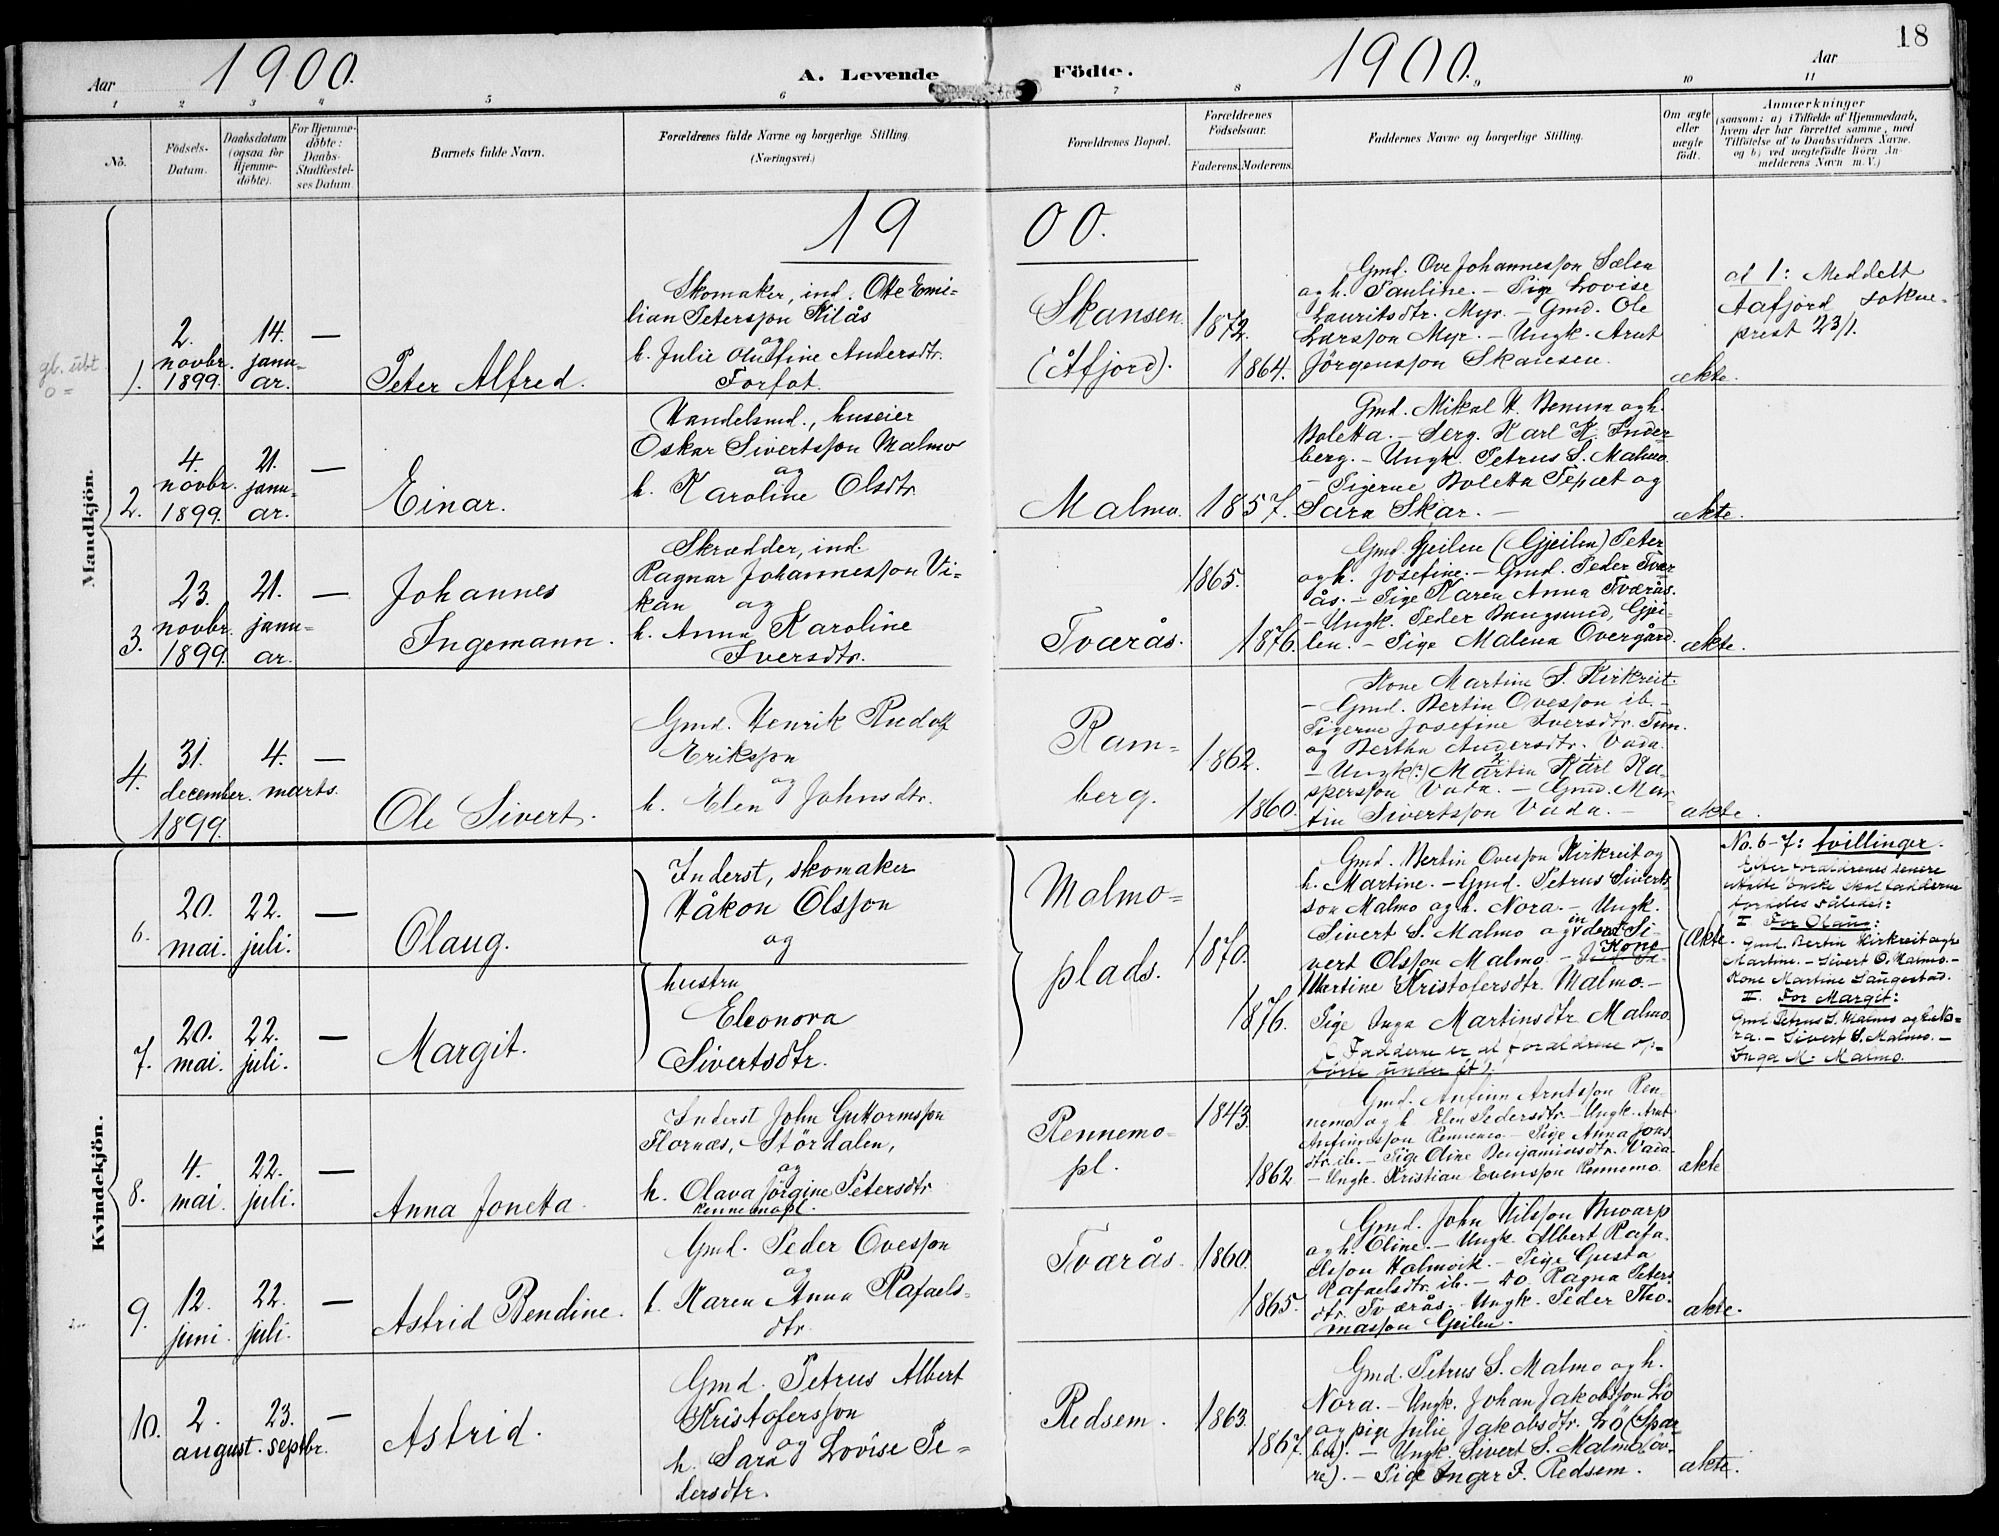 18
Aar 1900. A. Levende Födte. 1900. Aar
1 2 3 4 5 6 7 8 9 10 11
No.
Födsels-
Datum.
Daabsdatum
(ogsaa for
Hjemme-
döbte).
For Hjemme-
döbte:
Daabs-
Stadfæstel-
ses Datum.
Barnets fulde Navn.
Forældrenes fulde Navne og borgerlige Stilling.
(Næringsvei.)
Forældrenes Bopæl.
Forældrenes
Födselsaar.
Faderens. Moderens.
Faddernes Navne og borgerlige Stilling.
Om ægte
eller
uægte
födt.
Anmærkninger
(saasom: a) i Tilfælde af Hjemmedaab,
hvem der har forrettet samme, med
Tilföielse af to Daabsvidners Navne.
og b) ved uægtefödte Börn An-
melderens Navn m. V.)
1900.
Mandkjön.
1.
2.
novbr.
1899.
14.
janu-
ar.
—
Peter Alfred.
Skomaker, ind. Otte Emi-
lian Petersson Kilås
og
h. Julie Oluffine Andersdtr.
Forfot.
Skansen.
(Åfjord).
1872.
1864.
Gmd. Ove Johannesson Sælen
og h. Pauline. – Pige Lovise
Lauritsdtr. Myr. – Gmd. Ole
Larsson Myr. – Ungk. Arnt
Jörgensson Skansen.
ækte.
ad 1: Meddelt
Aafjord sokne-
prest 23/1.
2.
4.
novbr.
1899.
21.
janu-
ar.
—
Einar.
Handelsmd., huseier
Oskar Sivertsson Malmo
og
h. Karoline Olsdtr.
Malmo.
1857.
Gmd. Mikal H. Benum og h.
Boletta. – Serg. Karl K. Inder-
berg. – Ungk. Petrus S. Malmo.
– Pigerne Boletta Tepæt og
Sara Skar. –
ækte.
3.
23.
novbr.
1899.
21.
janu-
ar.
—
Johannes
Ingemann.
Skrædder, ind.
Ragnar Johannesson Vi-
kan og
h. Anna Karoline
Iversdtr.
Tværås.
1865.
1876.
Gmd. Gjeilen (Gjeilen) Peter
og h. Josefine. – Gmd. Peder Tvær-
ås. – Pige Karen Anna Tværås.
– Ungk. Peder Bangsund, Gjei-
len. – Pige Malena Overgård.
ækte.
4.
31.
december.
1899.
4.
marts.
—
Ole Sivert.
Gmd. Henrik Rudolf
Eriksson
og
h. Elen Johnsdtr.
Ram-
berg.
1862.
1860.
Kone Martine S. Kirkreit.
– Gmd. Bertin Ovesson ib. –
Pigerne Josefine Iversdtr. Tun.
og Bertha Andersdtr. Vada.
– Ungk. Martin Karl Ka-
spersson Vada. – Gmd. Mar-
tin Sivertsson Vada. –
ækte.
Kvindekjön.
6.
20.
mai.
22.
juli.
—
Olaug.
Inderst, skomaker
Håkon Olsson
og
7.
20.
mai.
22.
juli.
—
Margit.
hustru
Eleonora
Sivertsdtr.
Malmo-
plads.
1870.
1876.
Gmd. Bertin Ovesson Kirkreit og
h. Martine. – Gmd. Petrus Siverts-
son Malmo og h. Nora. – Ungk.
Sivert S. Malmo og inderst Si-
vert Olsson Malmo – Kone
Martine Kristofersdtr. Malmo. –
Pige Inga Martinsdtr. Malmo.
(Fadderne er af forældrene op-
förte under ét).
ækte.
No. 6-7: tvillinger.
Efter forældrenes senere
ønske skal fadderne
fordeles således:
I For Olaug:
Gmd. Bertin Kirkreit og h.
Martine. – Sivert O. Malmo. –
Kone Martine Saugestad.
II. For Margit:
Gmd. Petrus S. Malmo og h. No-
ra. – Sivert S. Malmo. –
Inga M. Malmo.
8.
4.
mai.
22.
juli.
—
Anna Jonetta.
Inderst John Guttormsson
Flornæs, Stördalen,
og
h. Olava Jörgine Petersdtr.
Rennemopl.
Rennemo-
pl.
1843.
1862
Gmd. Anfinn Arntsson Ren-
nemo og h. Elen Pedersdtr. – Ungk. Arnt
Anfinnsson Rennemo – Pige Anna Jons-
dtr. ib. – Pige Oline Benjaminsdtr. Vada.
– Ungk. Kristian Evensson Rennemo.
ækte
9.
12.
juni.
22.
juli.
—
Astrid Bendine.
Gmd. Peder Ovesson
og
h. Karen Anna Rafaels-
dtr.
Tværås.
1860.
1865.
Gmd. John Nilsson Buvarp
og h. Oline. – Ungk. Albert Rafa-
elsson Holmvik. – Pige Gusta
Rafaelsdtr. ib. – Do Ragna Peters-
dtr. Tværås. – Ungk. Peder Tho-
masson Gjeilen.
ækte.
10.
2.
august.
23.
septbr.
—
Astrid.
Gmd. Petrus Albert
Kristofersson
og
h. Sara Lovise Pe-
dersdtr.
Redsem.
1863.
1867.
Gmd. Petrus S. Malmo og h.
Nora. – Ungk. Johan Jakobsson Lö
og pige Julie Jakobsdtr. Lö (Spar-
bu). – Ungk. Sivert S. Malmo (öv-
re). – Pige Inger J. Redsem.
ækte.